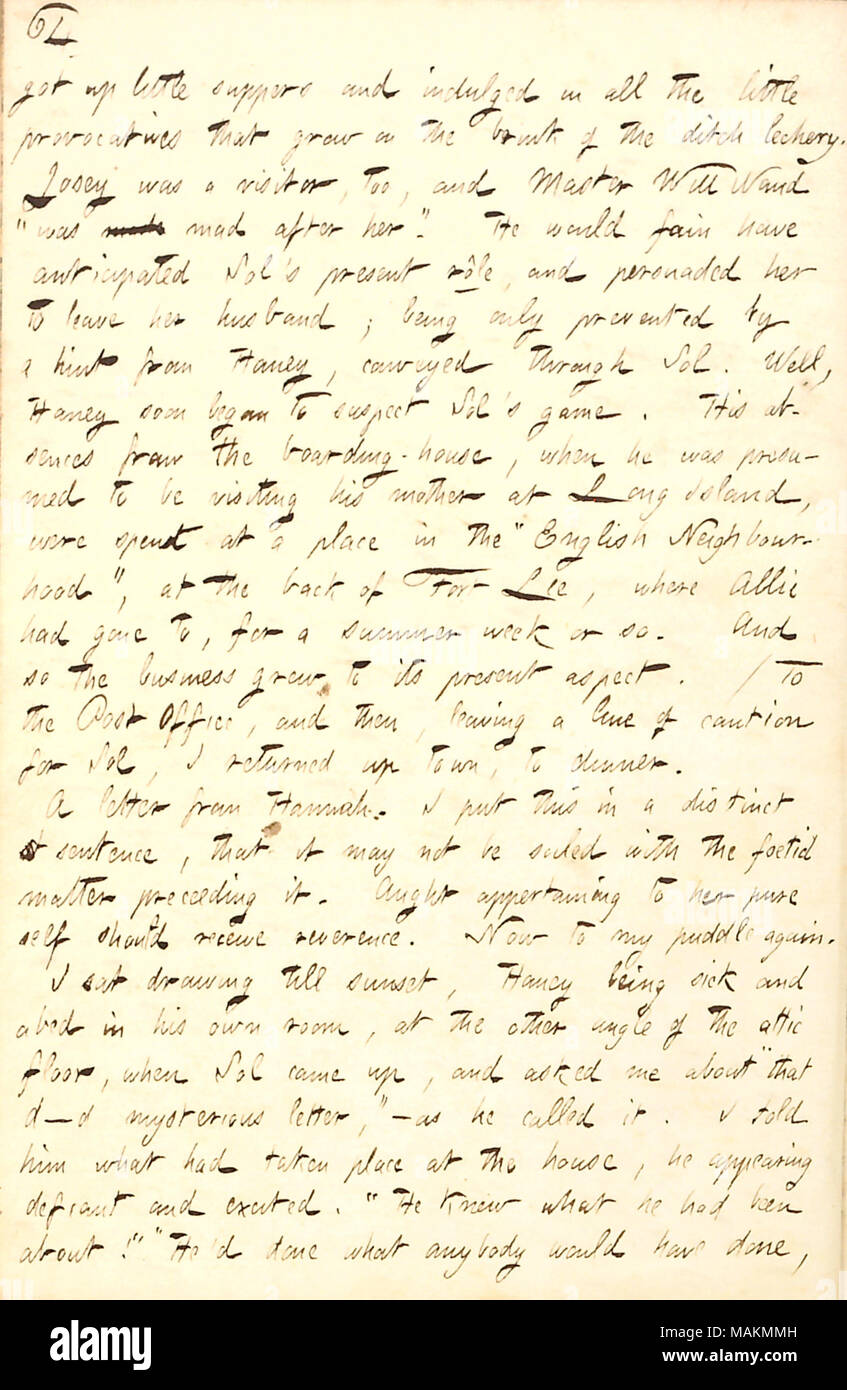 62
got up little suppers and indulged in all the little
provocatives that grow on the brink of the ditch lechery.
Josey was a visitor, too, and Master Will Waud
"was made mad after her." He would fain have
anticipated Sol's present rôle, and persuaded her
to leave her husband; being only prevented by
a hint from Haney, conveyed through Sol. Well,
Haney soon began to suspect Sol's game. His ab-
sences from the boarding-house, when he was presu-
med to be visiting his mother at Long Island,
were spent at a place in the "English Neighbour-
hood", at the back of Fort Lee, where Allie
had gone to, for a summer week or so. And
so the business grew to its present aspect. / To
the Post Office, and then, leaving a line of caution
for Sol, I returned up town, to dinner.
A letter from Hannah. I put this in a distinct
sentence, that it may not be soiled with the foetid
matter preceeding it. Aught appertaining to her pure
self should receive reverence. Now to my puddle again.
I sat drawing till sunset, Haney being sick and
abed in his own room, at the other angle of the attic
floor, when Sol came up, and asked me about "that
d—d mysterious letter,"—as he called it. I told
him what had taken place at the house, he appearing
defiant and excited. "He knew what he had been
about!" "He'd done what anybody would have done,
alamy
Image ID: MAKMMH
www.alamy.com